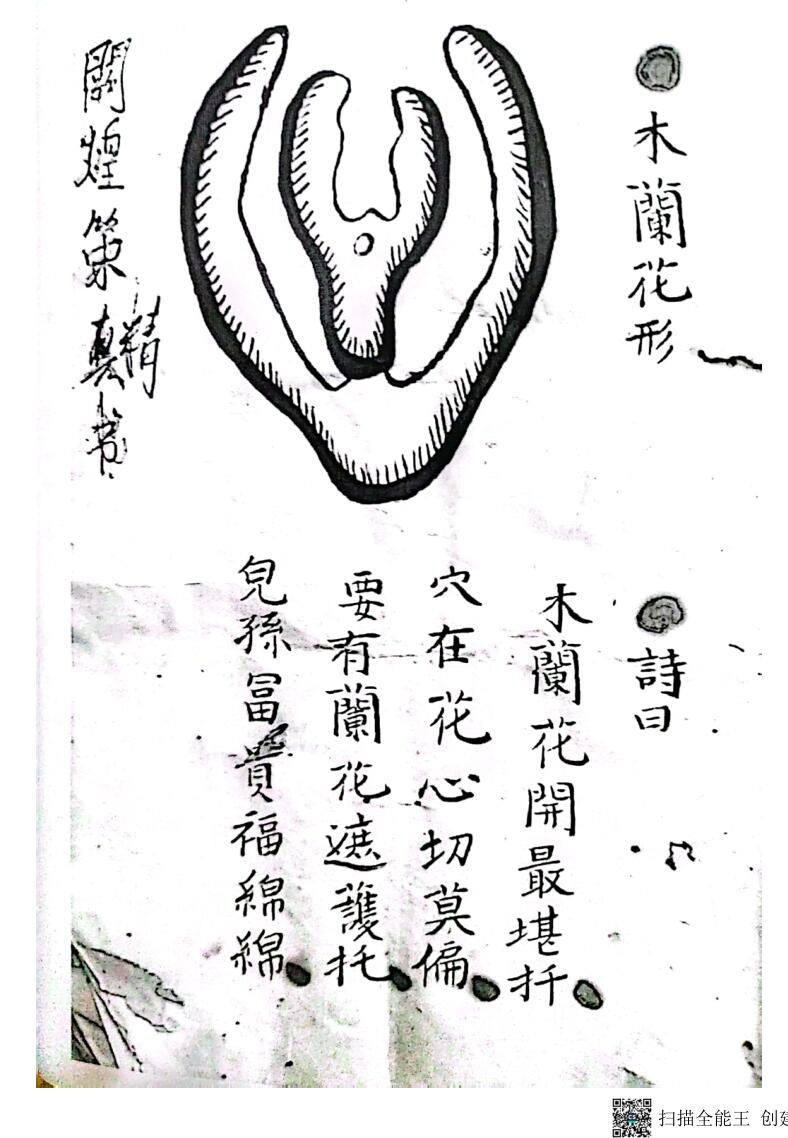 木蘭花形
詩曰
木蘭花開最堪扦
穴在花心切莫偏
要有蘭花遮護托
兒孫冨貴福綿綿
煌策真精书
扫描全能王 创建